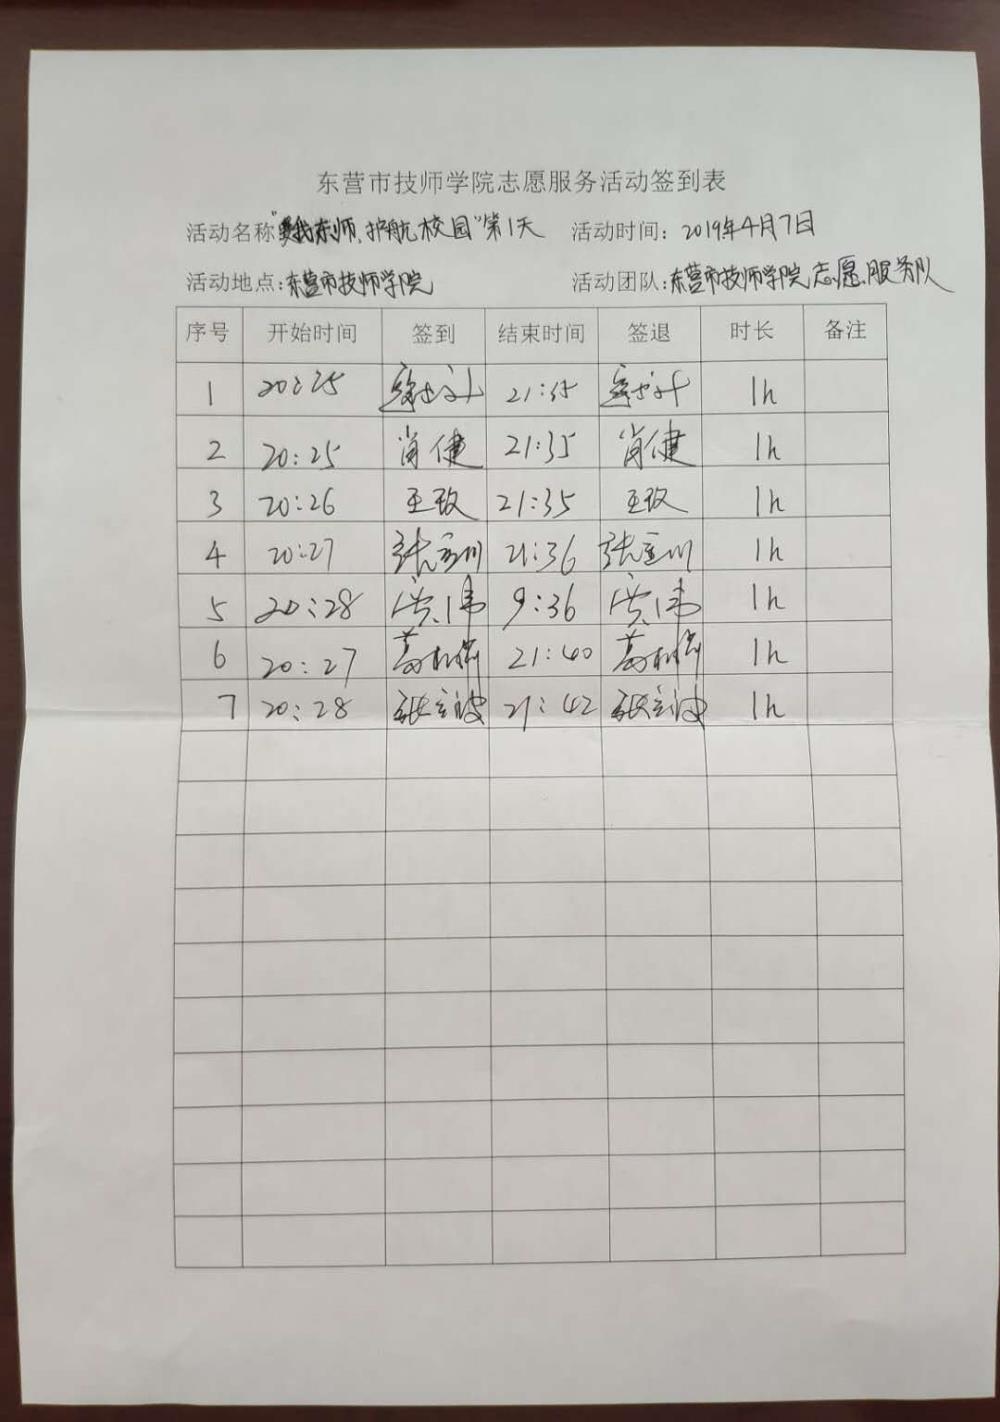 东营市技师学院志愿服务活动签到表
活动名称"我东师,护航校园"第1天 活动时间: 2019年4月7日
活动地点:东营市技师学院 活动团队:东营市技师学院志愿服务队
序号 开始时间 签到 结束时间 签退 时长 备注
1 20:25 21:35 1h
2 20:25 肖健 21:35 肖健 1h
3 20:26 王玫 21:35 王玫 1h
4 20:27 21:36 1h
5 20:28 洪伟 9:36 洪伟 1h
6 20:27 21:40 1h
7 20:28 21:42 1h